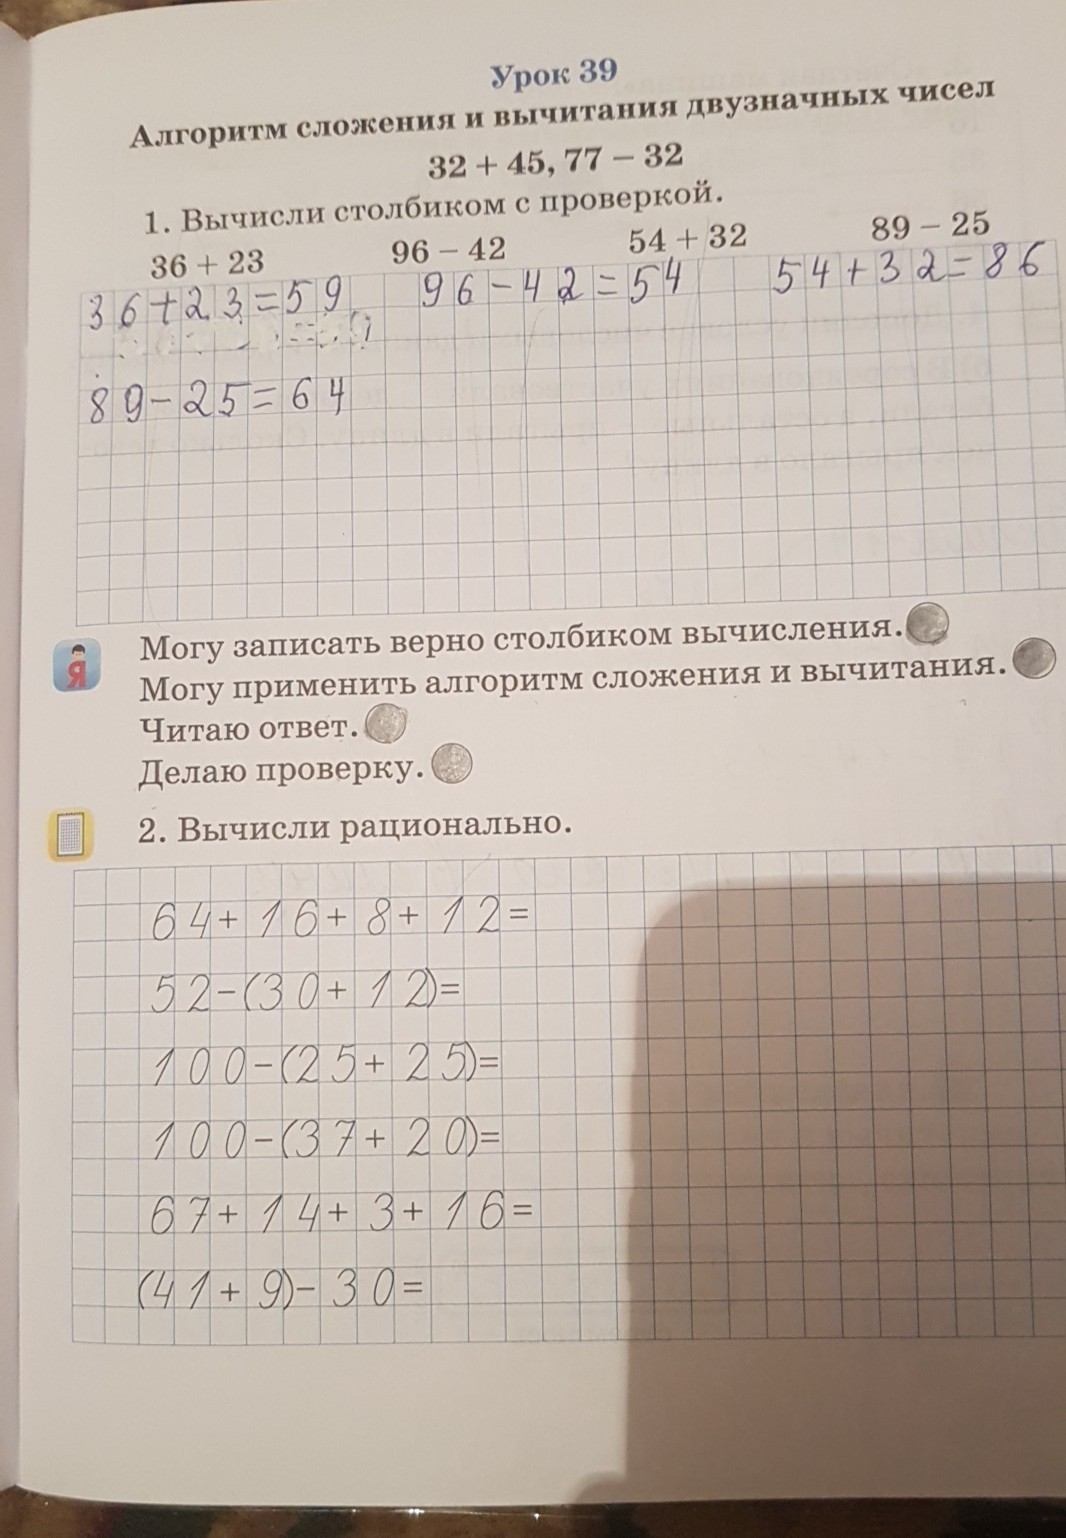 Урок 39
Алгоритм сложения и вычитания двузначных чисел
32 + 45, 77 – 32
1. Вычисли столбиком с проверкой.
36 + 23 96 – 42 54 + 32 89 – 25
36+23=59 96-42=54 54+32=86
89-25=64
Могу записать верно столбиком вычисления.
Могу применить алгоритм сложения и вычитания.
Читаю ответ.
Делаю проверку.
Я
2. Вычисли рационально.
64+16+8+12=
52-(30+12)=
100-(25+25)=
100-(37+20)=
67+14+3+16=
(41+9)-30=